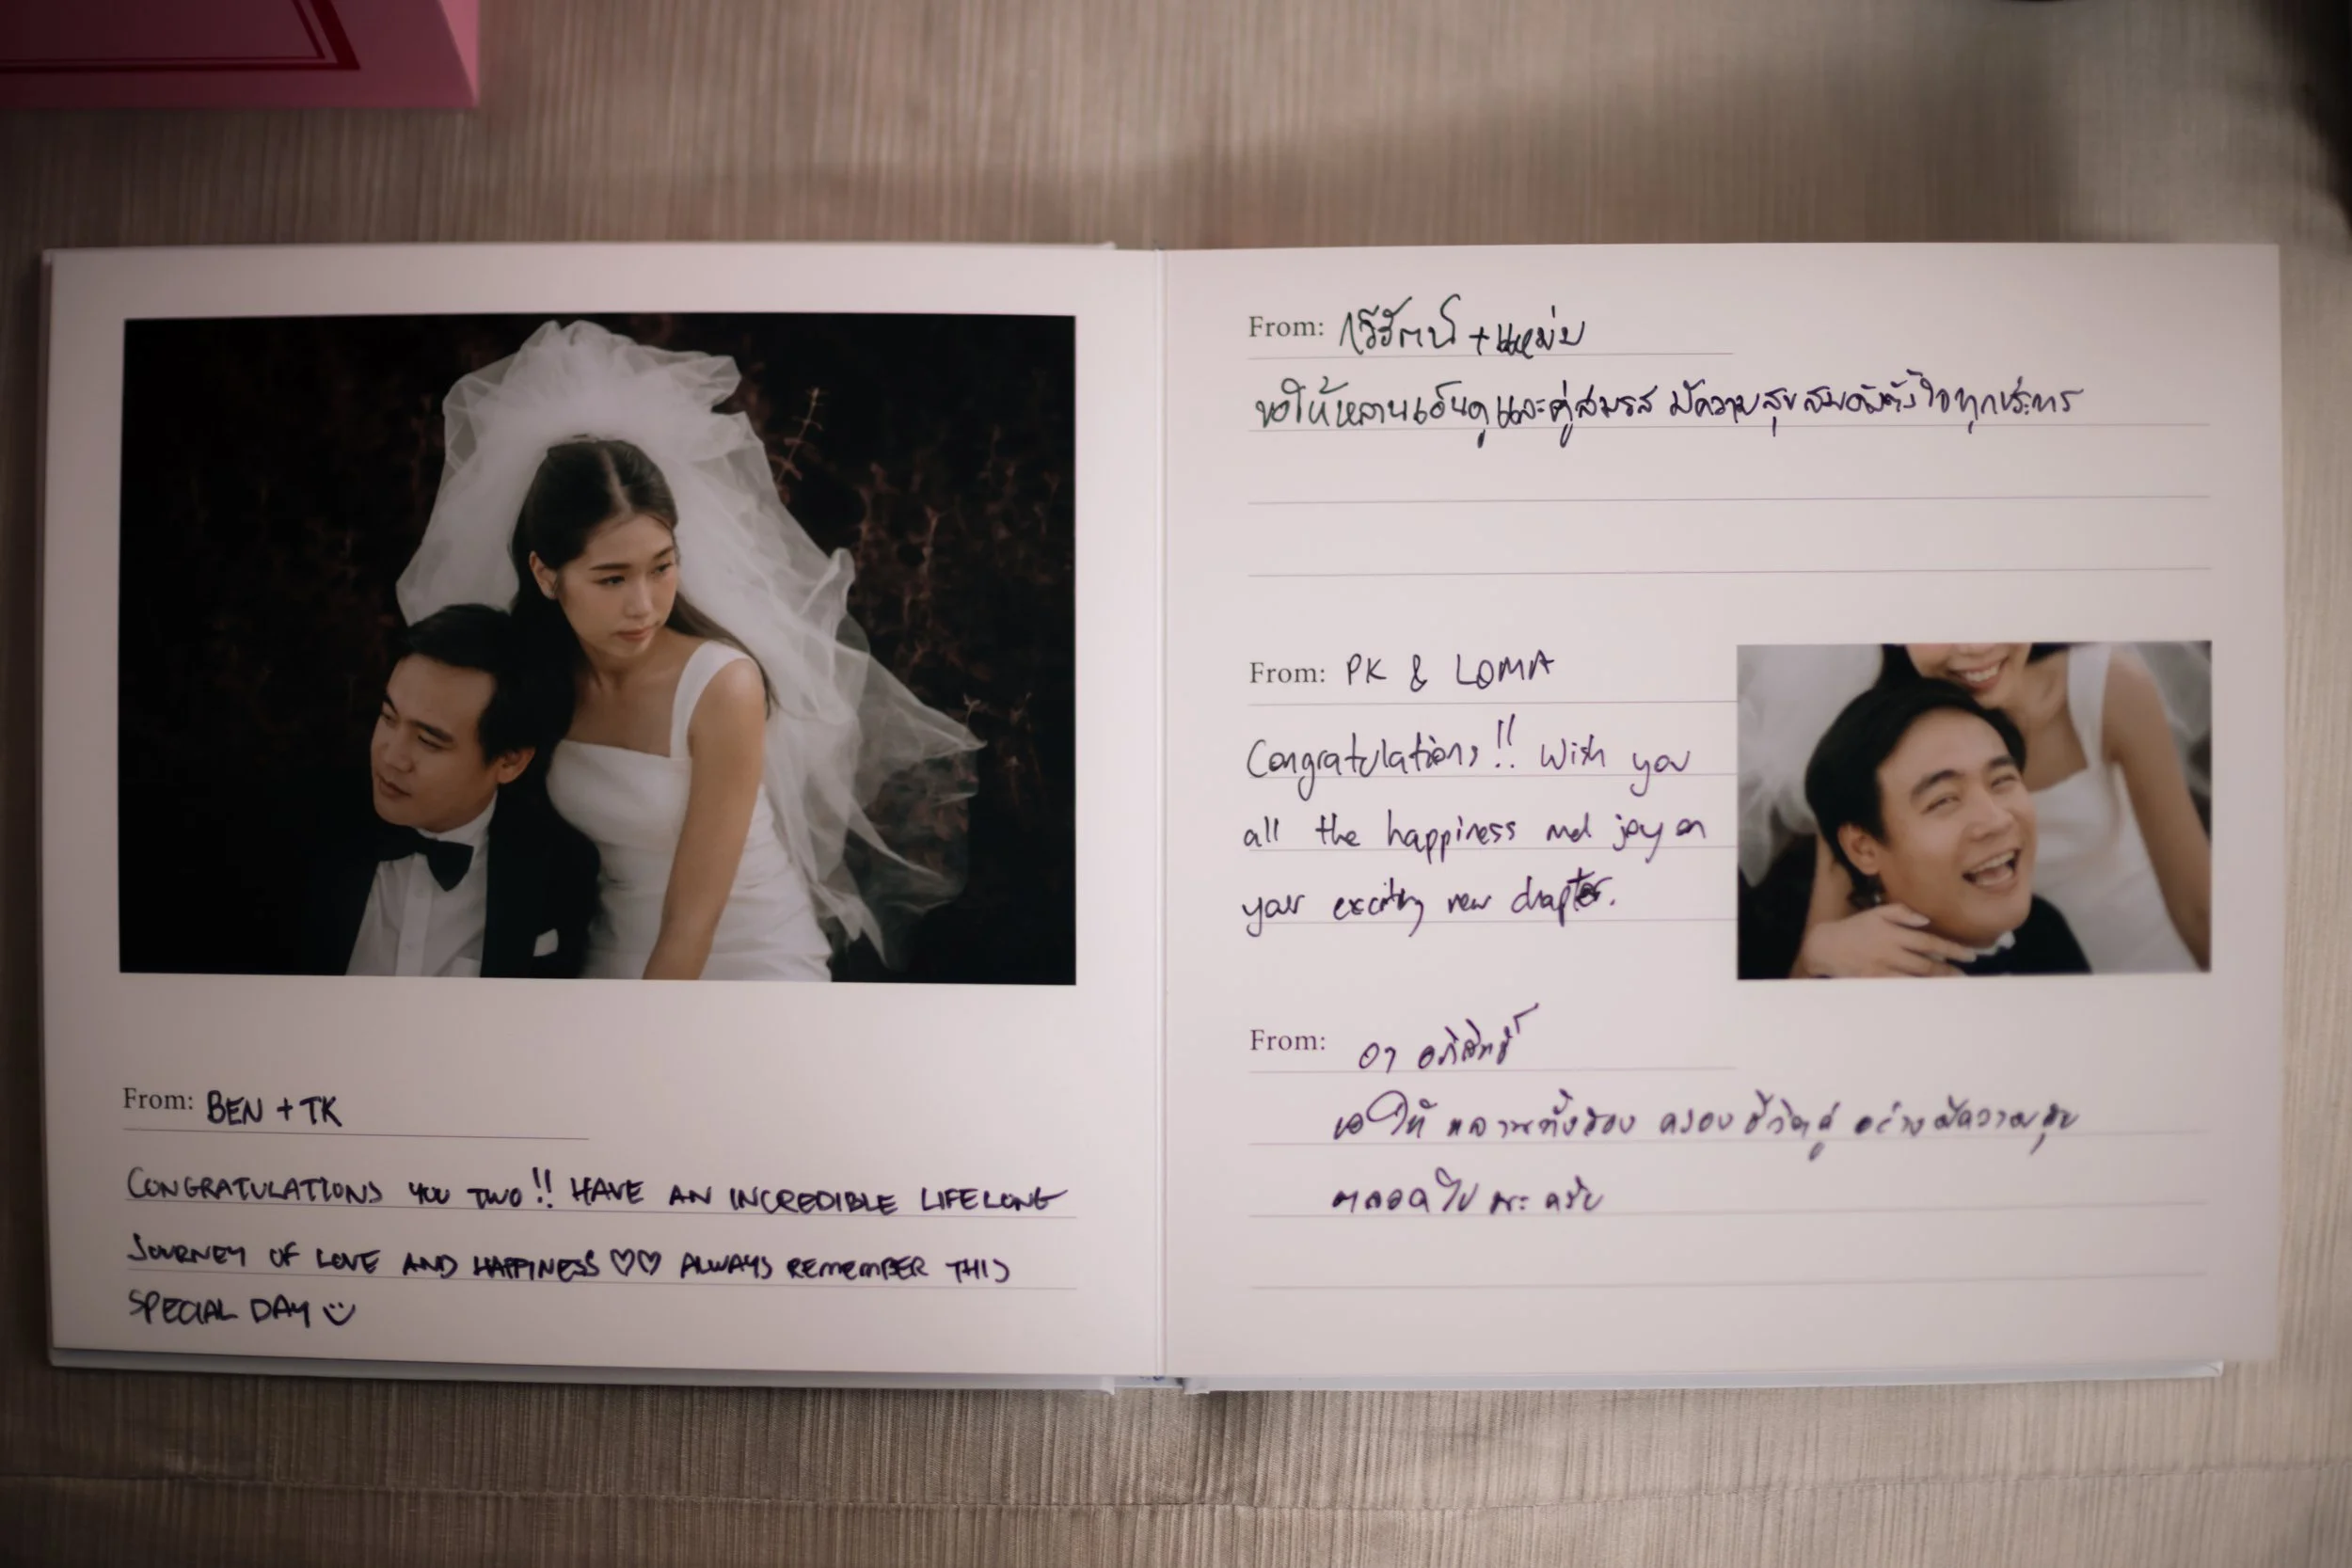 From: BEN + TK
CONGRATULATIONS YOU TWO!! HAVE AN INCREDIBLE LIFELONG
JOURNEY OF LOVE AND HAPPINESS ♡♡ ALWAYS REMEMBER THIS
SPECIAL DAY ツ
From: + แหม่ม
ขอให้หลานเอ็นดูและคู่สมรส มีความสุขสมดังตั้งใจทุกประการ
From: PK & LOMA
Congratulations!! Wish you
all the happiness and joy on
your exciting new chapter.
From: อา อภิสิทธิ์
ขอให้ หลานทั้งสอง ครองชีวิตคู่ อย่างมีความสุข
ตลอดไป นะ ครับ